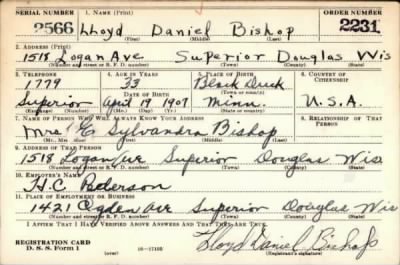 SERIAL NUMBER 1. NAME (Print) ORDER NUMBER
2566 Lloyd Daniel Bishop 2231
(First) (Middle) (Last)
2. ADDRESS (Print)
1518 Logan Ave Superior Douglas Wis
(Number and street or R. F. D. number) (Town) (County) (State)
3. TELEPHONE 4. AGE IN YEARS 5. PLACE OF BIRTH 6. COUNTRY OF CITIZENSHIP
1779 33 Black Duck
DATE OF BIRTH (Town or county)
Superior April 19 1907 Minn. U.S.A.
(Exchange) (Mo.) (Day) (Yr.) (State or country)
7. NAME OF PERSON WHO WILL ALWAYS KNOW YOUR ADDRESS 8. RELATIONSHIP OF THAT PERSON
Mrs. E Sylvandra Bishop
(Mr., Mrs., Miss) (First) (Middle) (Last)
9. ADDRESS OF THAT PERSON
1518 Logan Ave Superior Douglas Wis
(Number and street or R. F. D. number) (Town) (County) (State)
10. EMPLOYER'S NAME
H.C. Peterson
11. PLACE OF EMPLOYMENT OR BUSINESS
1421 Ogden Ave Superior Douglas Wis
(Number and street or R. F. D. number) (Town) (County) (State)
I AFFIRM THAT I HAVE VERIFIED ABOVE ANSWERS AND THAT THEY ARE TRUE.
REGISTRATION CARD
D. S. S. Form 1 (over) 16—17105 Lloyd Daniel Bishop
(Registrant's signature)